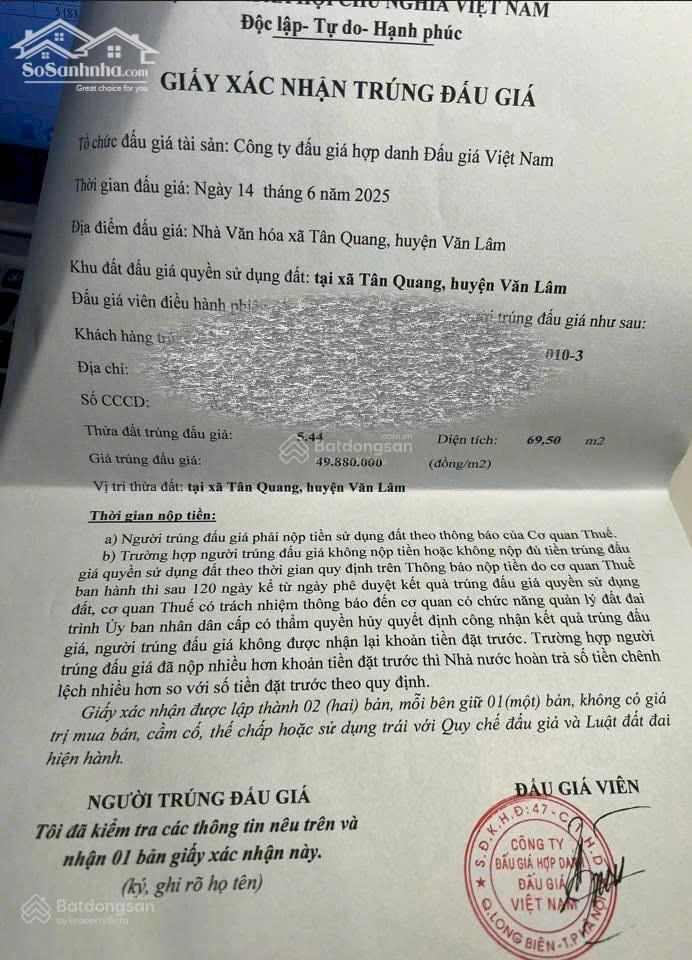 5 (83
SoSanhnha.com
Great choice for you
NGHĨA VIỆT NAM
Độc lập- Tự do- Hạnh phúc
GIẤY XÁC NHẬN TRÚNG ĐẤU GIÁ
Tổ chức đấu giá tài sản: Công ty đấu giá hợp danh Đấu giá Việt Nam
Thời gian đấu giá: Ngày 14 tháng 6 năm 2025
Địa điểm đấu giá: Nhà Văn hóa xã Tân Quang, huyện Văn Lâm
Khu đất đấu giá quyền sử dụng đất: tại xã Tân Quang, huyện Văn Lâm
Đấu giá viên điều hành trúng đấu giá như sau:
Khách hàng 010-3
Địa chỉ:
Số CCCD:
Thửa đất trúng đấu giá: 5.44 Diện tích: 69,50 m2
Batdongsan
.com.vn
Giá trúng đấu giá: 49.880.000 (đồng/m2)
Vị trí thửa đất: tại xã Tân Quang, huyện Văn Lâm
Thời gian nộp tiền:
a) Người trúng đấu giá phải nộp tiền sử dụng đất theo thông báo của Cơ quan Thuế.
b) Trường hợp người trúng đấu giá không nộp tiền hoặc không nộp đủ tiền trúng đấu
giá quyền sử dụng đất theo thời gian quy định trên Thông báo nộp tiền do cơ quan Thuế
ban hành thì sau 120 ngày kể từ ngày phê duyệt kết quả trúng đấu giá quyền sử dụng
đất, cơ quan Thuế có trách nhiệm thông báo đến cơ quan có chức năng quản lý đất đai
trình Ủy ban nhân dân cấp có thẩm quyền hủy quyết định công nhận kết quả trúng đấu
giá, người trúng đấu giá không được nhận lại khoản tiền đặt trước. Trường hợp người
trúng đấu giá đã nộp nhiều hơn khoản tiền đặt trước thì Nhà nước hoàn trả số tiền chênh
lệch nhiều hơn so với số tiền đặt trước theo quy định.
Giấy xác nhận được lập thành 02 (hai) bản, mỗi bên giữ 01(một) bản, không có giá
trị mua bán, cầm cố, thế chấp hoặc sử dụng trái với Quy chế đấu giá và Luật đất đai
hiện hành.
NGƯỜI TRÚNG ĐẤU GIÁ
Tôi đã kiểm tra các thông tin nêu trên và
nhận 01 bản giấy xác nhận này.
(ký, ghi rõ họ tên)
ĐẤU GIÁ VIÊN
S.Đ.K.H.Đ: 47-C.T.H.D
CÔNG TY
ĐẤU GIÁ HỢP DANH
ĐẤU GIÁ
VIỆT NAM
Q.LONG BIÊN-T.P HÀ NỘI
Batdongsan
by PropertyGuru
Batdongsan